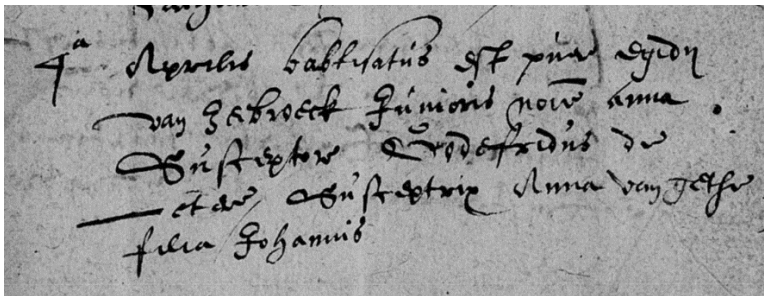 4a Aprilis babtisatus est puer egidij
van zebroeck Junioris noie anna .
Susceptor Godefridus de
Susceptrix Anna van gethe
filia Johannis